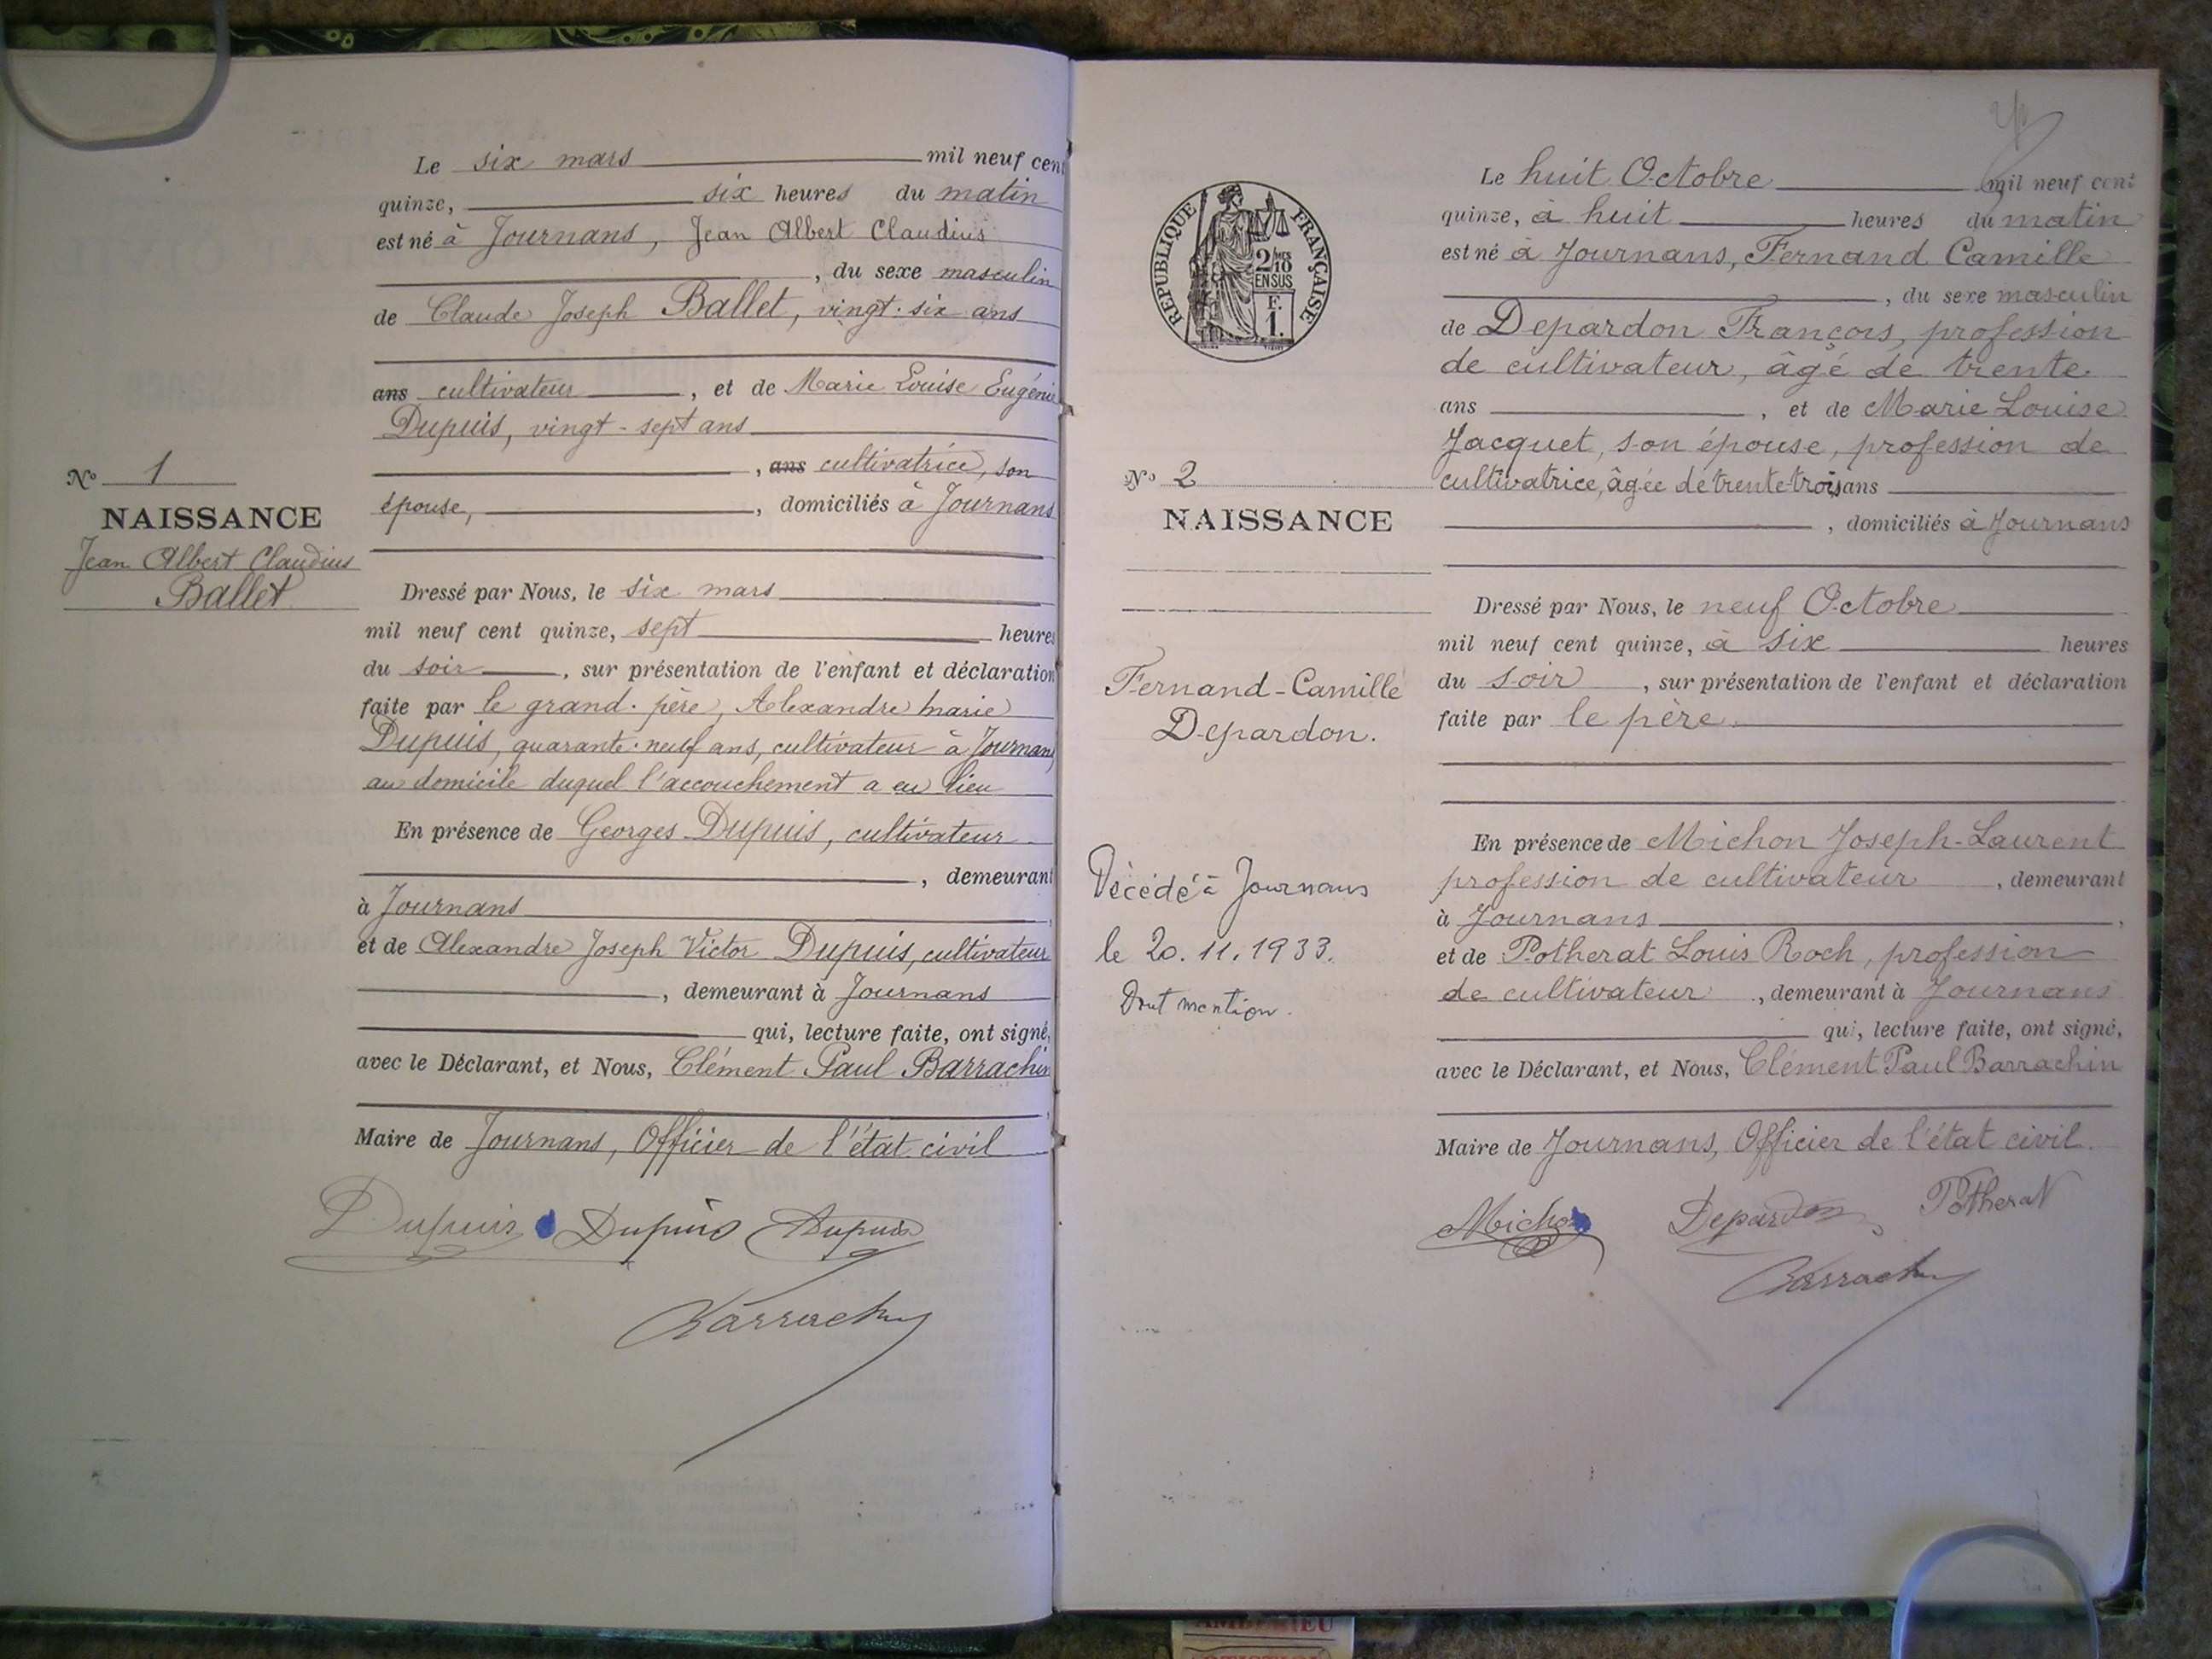 Le six mars mil neuf cent
quinze, six heures du matin
est né à Journans, Jean Albert Claudius
, du sexe masculin
de Claude Joseph Ballet, vingt-six ans
ans cultivateur, et de Marie Louise Eugénie
Dupuis, vingt-sept ans
, ans cultivatrice, son
épouse, , domiciliés à Journans
No 1
NAISSANCE
Jean Albert Claudius
Ballet
Dressé par Nous, le six mars
mil neuf cent quinze, sept heures
du soir, sur présentation de l'enfant et déclaration
faite par le grand-père, Alexandre Marie
Dupuis, quarante-neuf ans, cultivateur à Journans
au domicile duquel l'accouchement a eu lieu
En présence de Georges Dupuis, cultivateur
, demeurant
à Journans,
et de Alexandre Joseph Victor Dupuis, cultivateur
, demeurant à Journans
qui, lecture faite, ont signé,
avec le Déclarant, et Nous, Clément Paul Barrachin
,
Maire de Journans, Officier de l'état civil
Dupuis Dupuis Dupuis
Barrachin
RÉPUBLIQUE FRANÇAISE
2/10 MES
EN SUS
F.
1.
Le huit Octobre mil neuf cent
quinze, à huit heures du matin
est né à Journans, Fernand Camille
, du sexe masculin
de Depardon François, profession
de cultivateur, âgé de trente
ans, et de Marie Louise
Jacquet, son épouse, profession de
cultivatrice, âgée de trente-trois ans
, domiciliés à Journans
No 2
NAISSANCE
Fernand-Camille
Depardon.
Décédé à Journans
le 20.11.1933.
Dont mention.
Dressé par Nous, le neuf Octobre
mil neuf cent quinze, à six heures
du soir, sur présentation de l'enfant et déclaration
faite par le père
En présence de Michon Joseph-Laurent
profession de cultivateur, demeurant
à Journans,
et de Potherat Louis Roch, profession
de cultivateur, demeurant à Journans
qui, lecture faite, ont signé,
avec le Déclarant, et Nous, Clément Paul Barrachin
Maire de Journans, Officier de l'état civil.
Michon Depardon Potherat
Barrachin